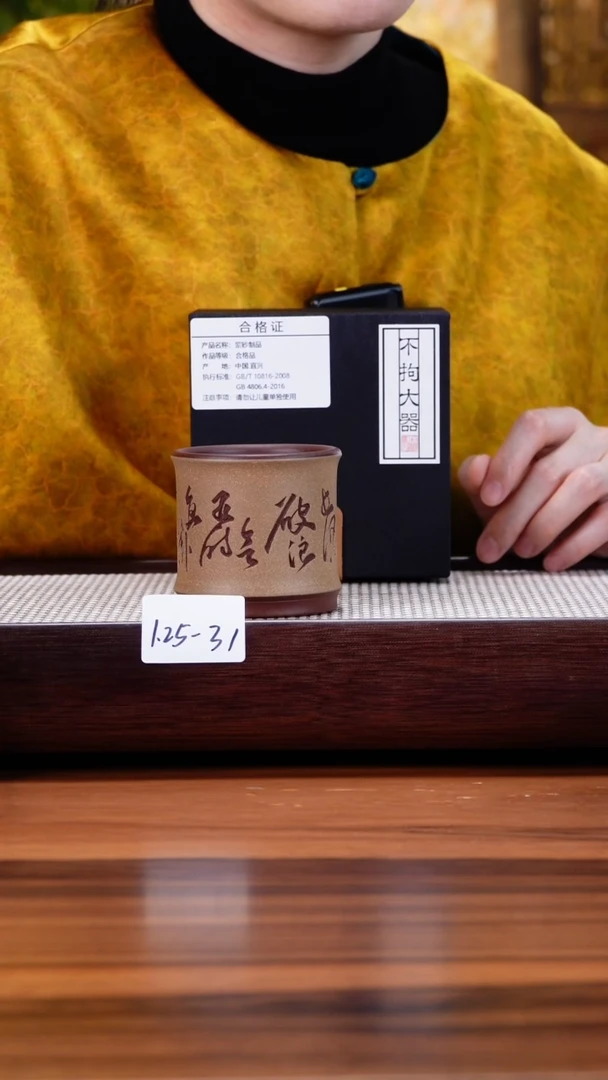 合格证
产品名称: 紫砂制品
作品等级: 合格品
产 地: 中国 宜兴
执行标准: GB/T 10816-2008
GB 4806.4-2016
注意事项: 请勿让儿童单独使用
不拘大器
破浪
会
有时
1.25-31